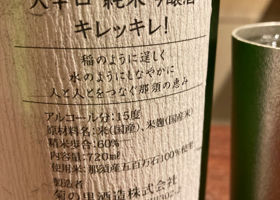 大辛口 純米吟醸酒
キレッキレ!
稲のように逞しく
水のようにもなやかに
人と人とをつなぐ那須の恵み
アルコール分:15度
原材料名:米(国産)、米麹(国産米)
精米歩合:60%
内容量:720ml
使用米:那須産五百万石100%使用
製造者
菊の里酒造株式会社